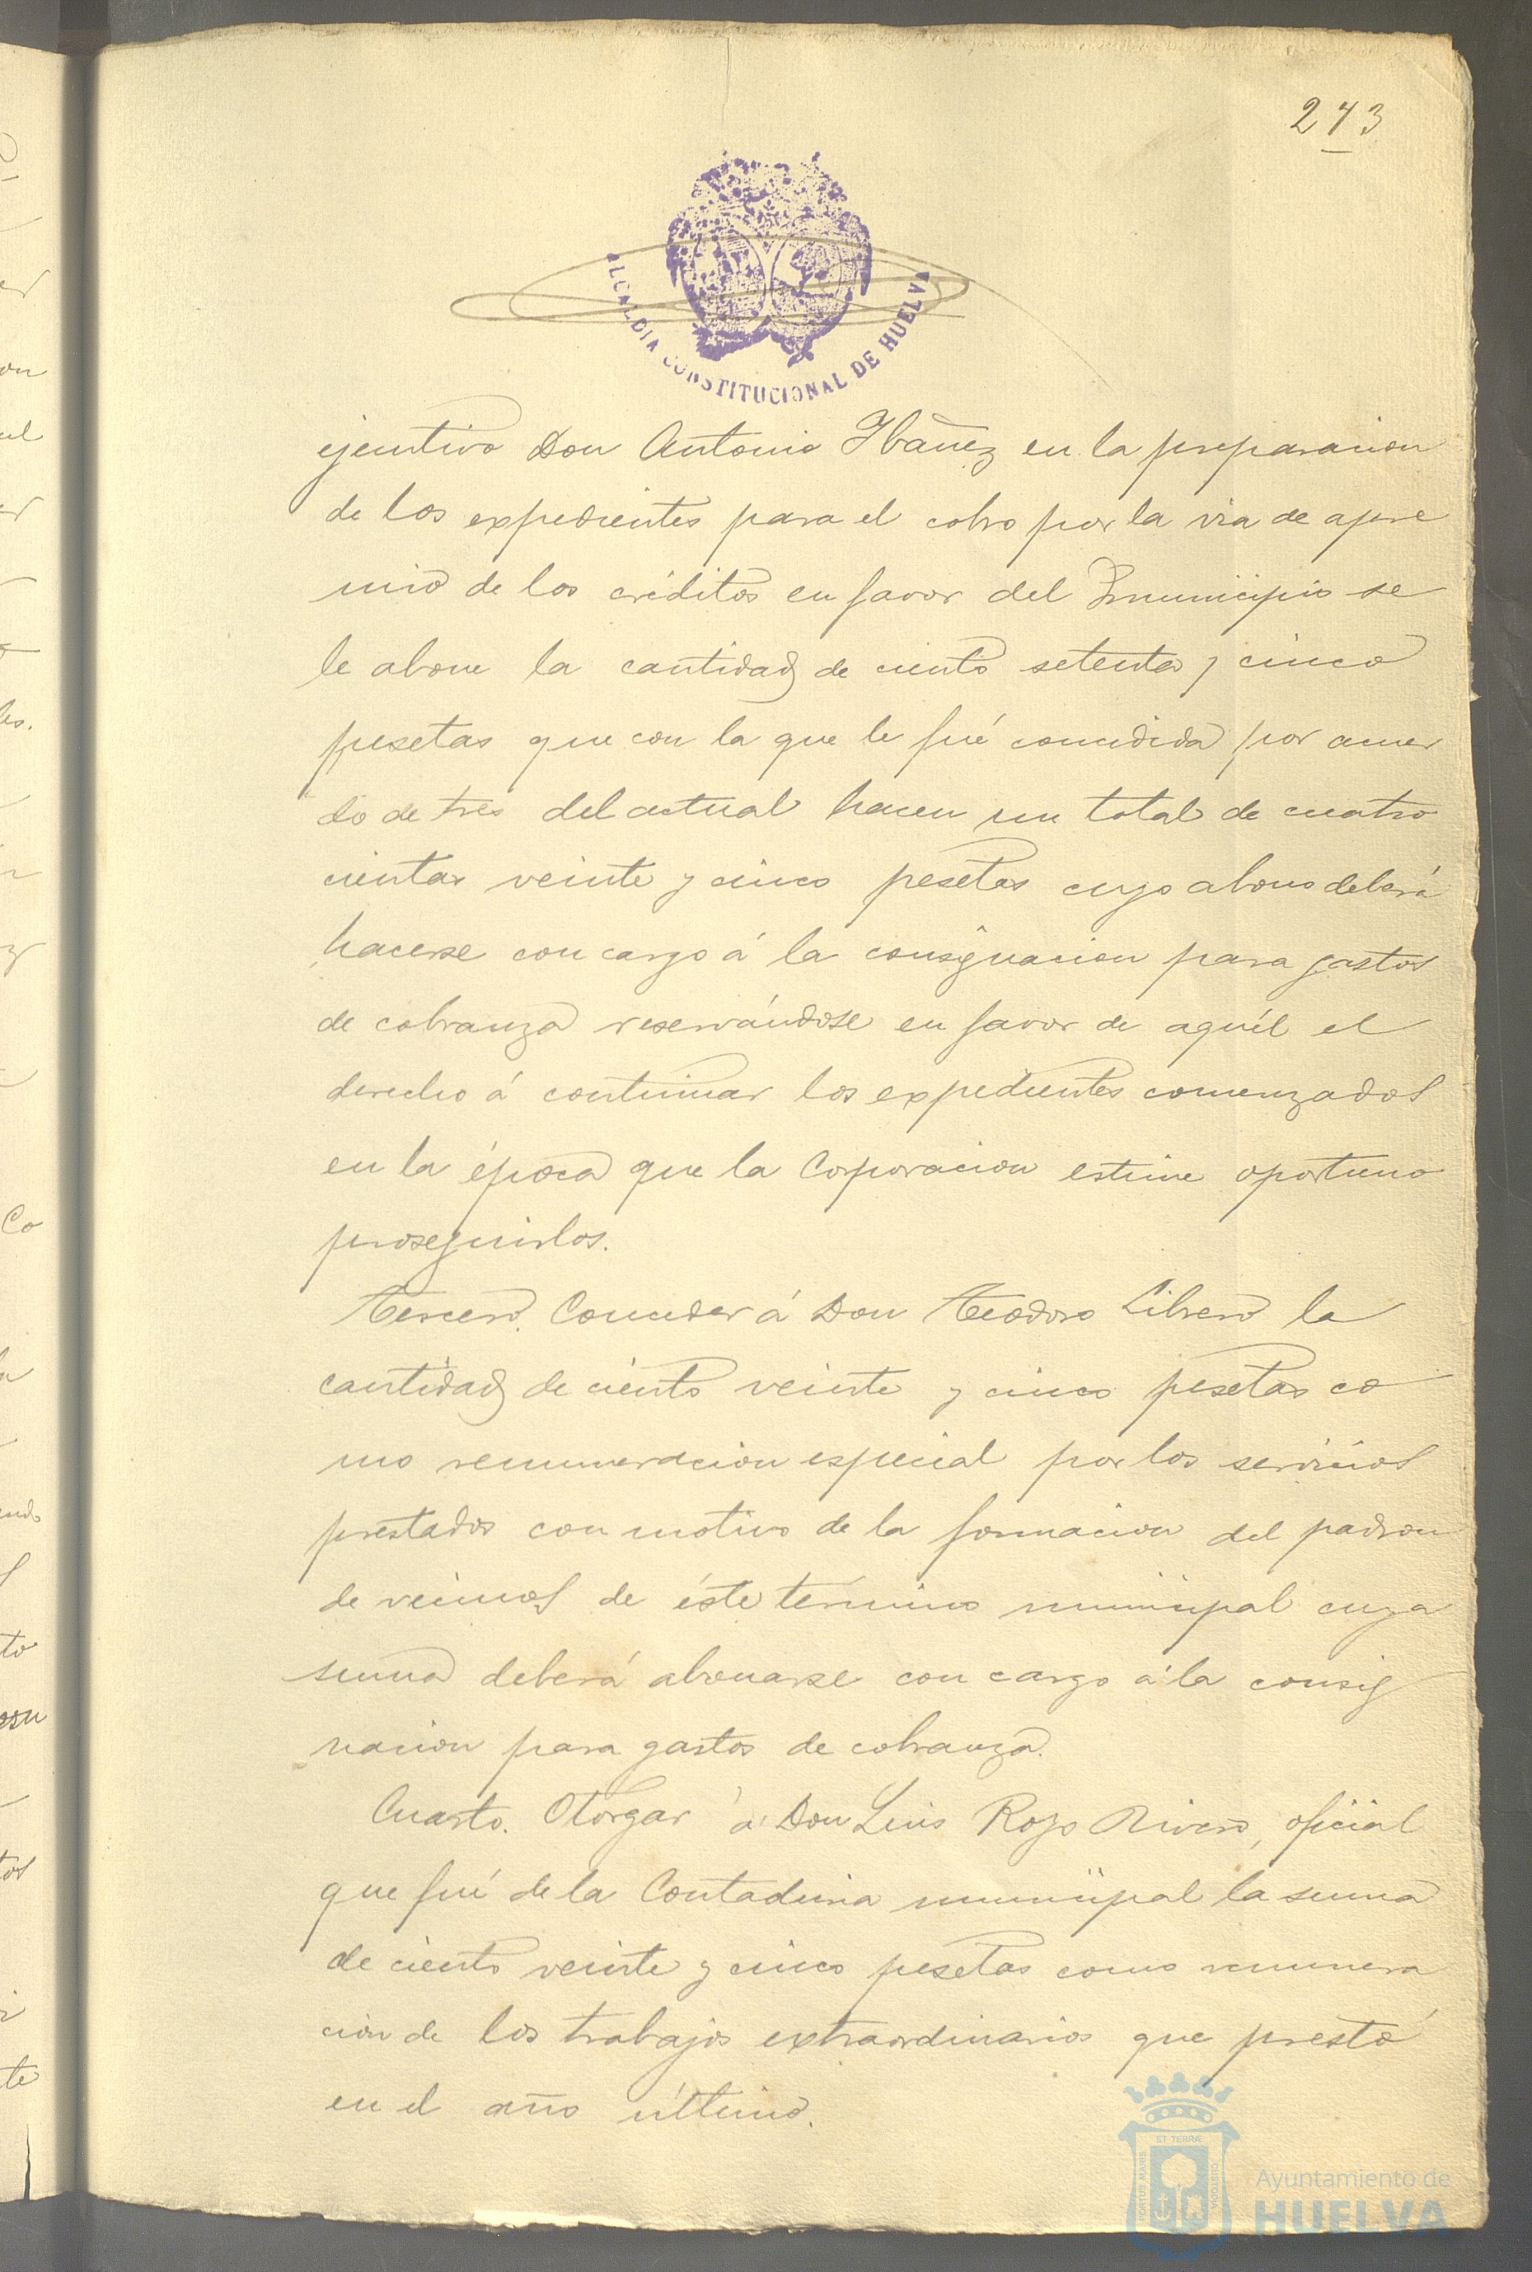 273
ALCALDIA CONSTITUCIONAL DE HUELVA
ejecutivo Don Antonio Ibáñez en la preparacion
de los expedientes para el cobro por la via de apre
mio de los créditos en favor del Municipio se
le abone la cantidad de ciento setenta y cinco
pesetas que con la que le fué concedida por acuer
do de tres del actual hacen un total de cuatro
cientas veinte y cinco pesetas cuyo abono deberá
hacerse con cargo á la consignacion para gastos
de cobranza reservándose en favor de aquél el
derecho á continuar los expedientes comenzados
en la época que la Corporacion estime oportuno
proseguirlos.
Tercero. Conceder á Don Teodoro Librero la
cantidad de ciento veinte y cinco pesetas co
mo remuneracion especial por los servicios
prestados con motivo de la formacion del padron
de vecinos de éste termino municipal cuya
suma deberá abonarse con cargo á la consig
nacion para gastos de cobranza.
Cuarto. Otorgar á Don Luis Rojo Rivero, oficial
que fué de la Contaduria municipal la suma
de ciento veinte y cinco pesetas como remunera
cion de los trabajos extraordinarios que prestó
en el año último.
PORTUS MARIS ET TERRÆ CUSTODIA
Ayuntamiento de
HUELVA